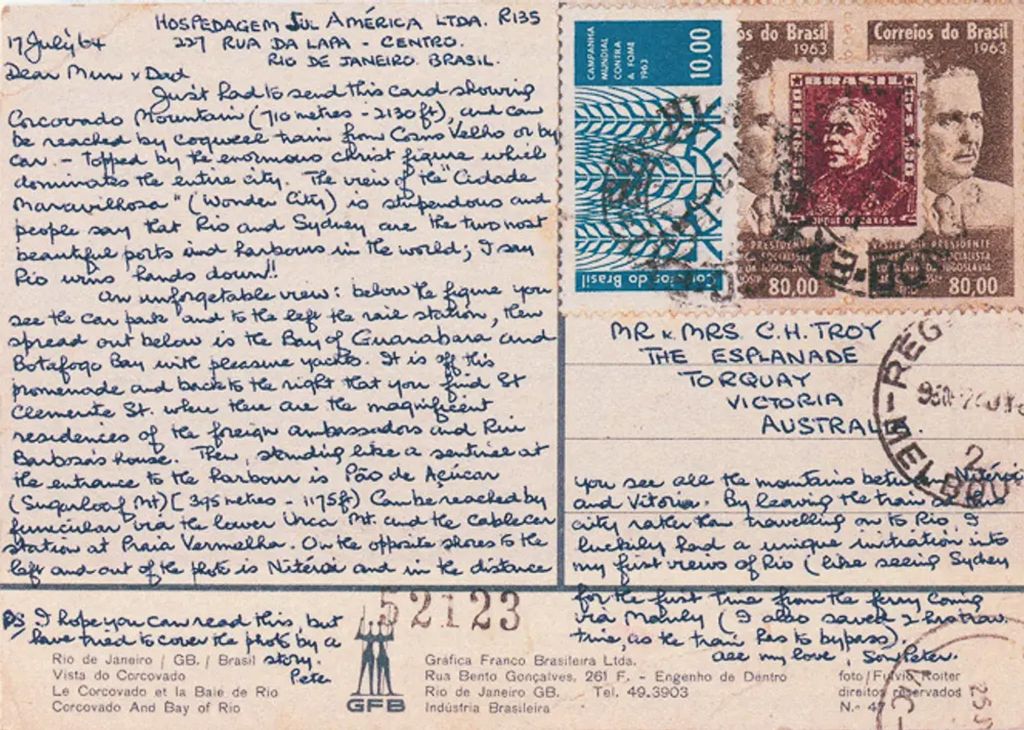 HOSPEDAGEM SUL AMÉRICA LTDA. R135
17 July '64
227 RUA DA LAPA - CENTRO.
RIO DE JANEIRO. BRASIL.
Dear Mum & Dad
Just had to send this card showing
Corcovado Mountain (710 metres - 2130 ft), and can
be reached by cogwheel train from Cosmo Velho or by
car. - Topped by the enormous Christ figure which
dominates the entire city. The view of the "Cidade
Maravilhosa" (Wonder City) is stupendous and
people say that Rio and Sydney are the two most
beautiful ports and harbours in the world; I say
Rio wins hands down!!
An unforgetable view: below the figure you
see the car park and to the left the rail station, then
spread out below is the Bay of Guanabara and
Botafogo Bay with pleasure yachts. It is off this
promenade and back to the right that you find St
Clemente St. where there are the magnificent
residences of the foreign ambassadors and Rui
Barbosa's house. Then, standing like a sentinel at
the entrance to the harbour is Pão de Açúcar
(Sugarloaf Mt) [395 metres - 1175 ft) Can be reached by
funicular via the lower Urca Mt. and the cablecar
station at Praia Vermelha. On the opposite shores to the
left and out of the photo is Niterói and in the distance
CAMPANHA
MUNDIAL
CONTRA
A FOME
1963
10,00
Correios do Brasil
os do Brasil
1963
PRESIDENTE
80,00
BRASIL
DUQUE DE CAXIAS
Correios do Brasil
1963
VISITA DO PRESIDENTE
80,00
MR & MRS. C.H. TROY
THE ESPLANADE
TORQUAY
VICTORIA
AUSTRALIA.
REG
MELBOU
2
you see all the mountains between Niterói
and Vitoria. By leaving the train
city rather than travelling on to Rio, I
luckily had a unique initiation into
my first views of Rio (like seeing Sydney
for the first time from the ferry coming
via Manly (I also saved 2 hrs
time, as the train has to bypass).
all my love, Son Peter.
52123
PS I hope you can read this, but
have tried to cover the photo by a
story.
Peter
Rio de Janeiro / GB. / Brasil
Vista do Corcovado
Le Corcovado et la Baie de Rio
Corcovado And Bay of Rio
GFB
Gráfica Franco Brasileira Ltda.
Rua Bento Gonçalves, 261 F. - Engenho de Dentro
Rio de Janeiro GB. Tel. 49.3903
Indústria Brasileira
foto/Fulvio Roiter
direitos reservados
N.- 47